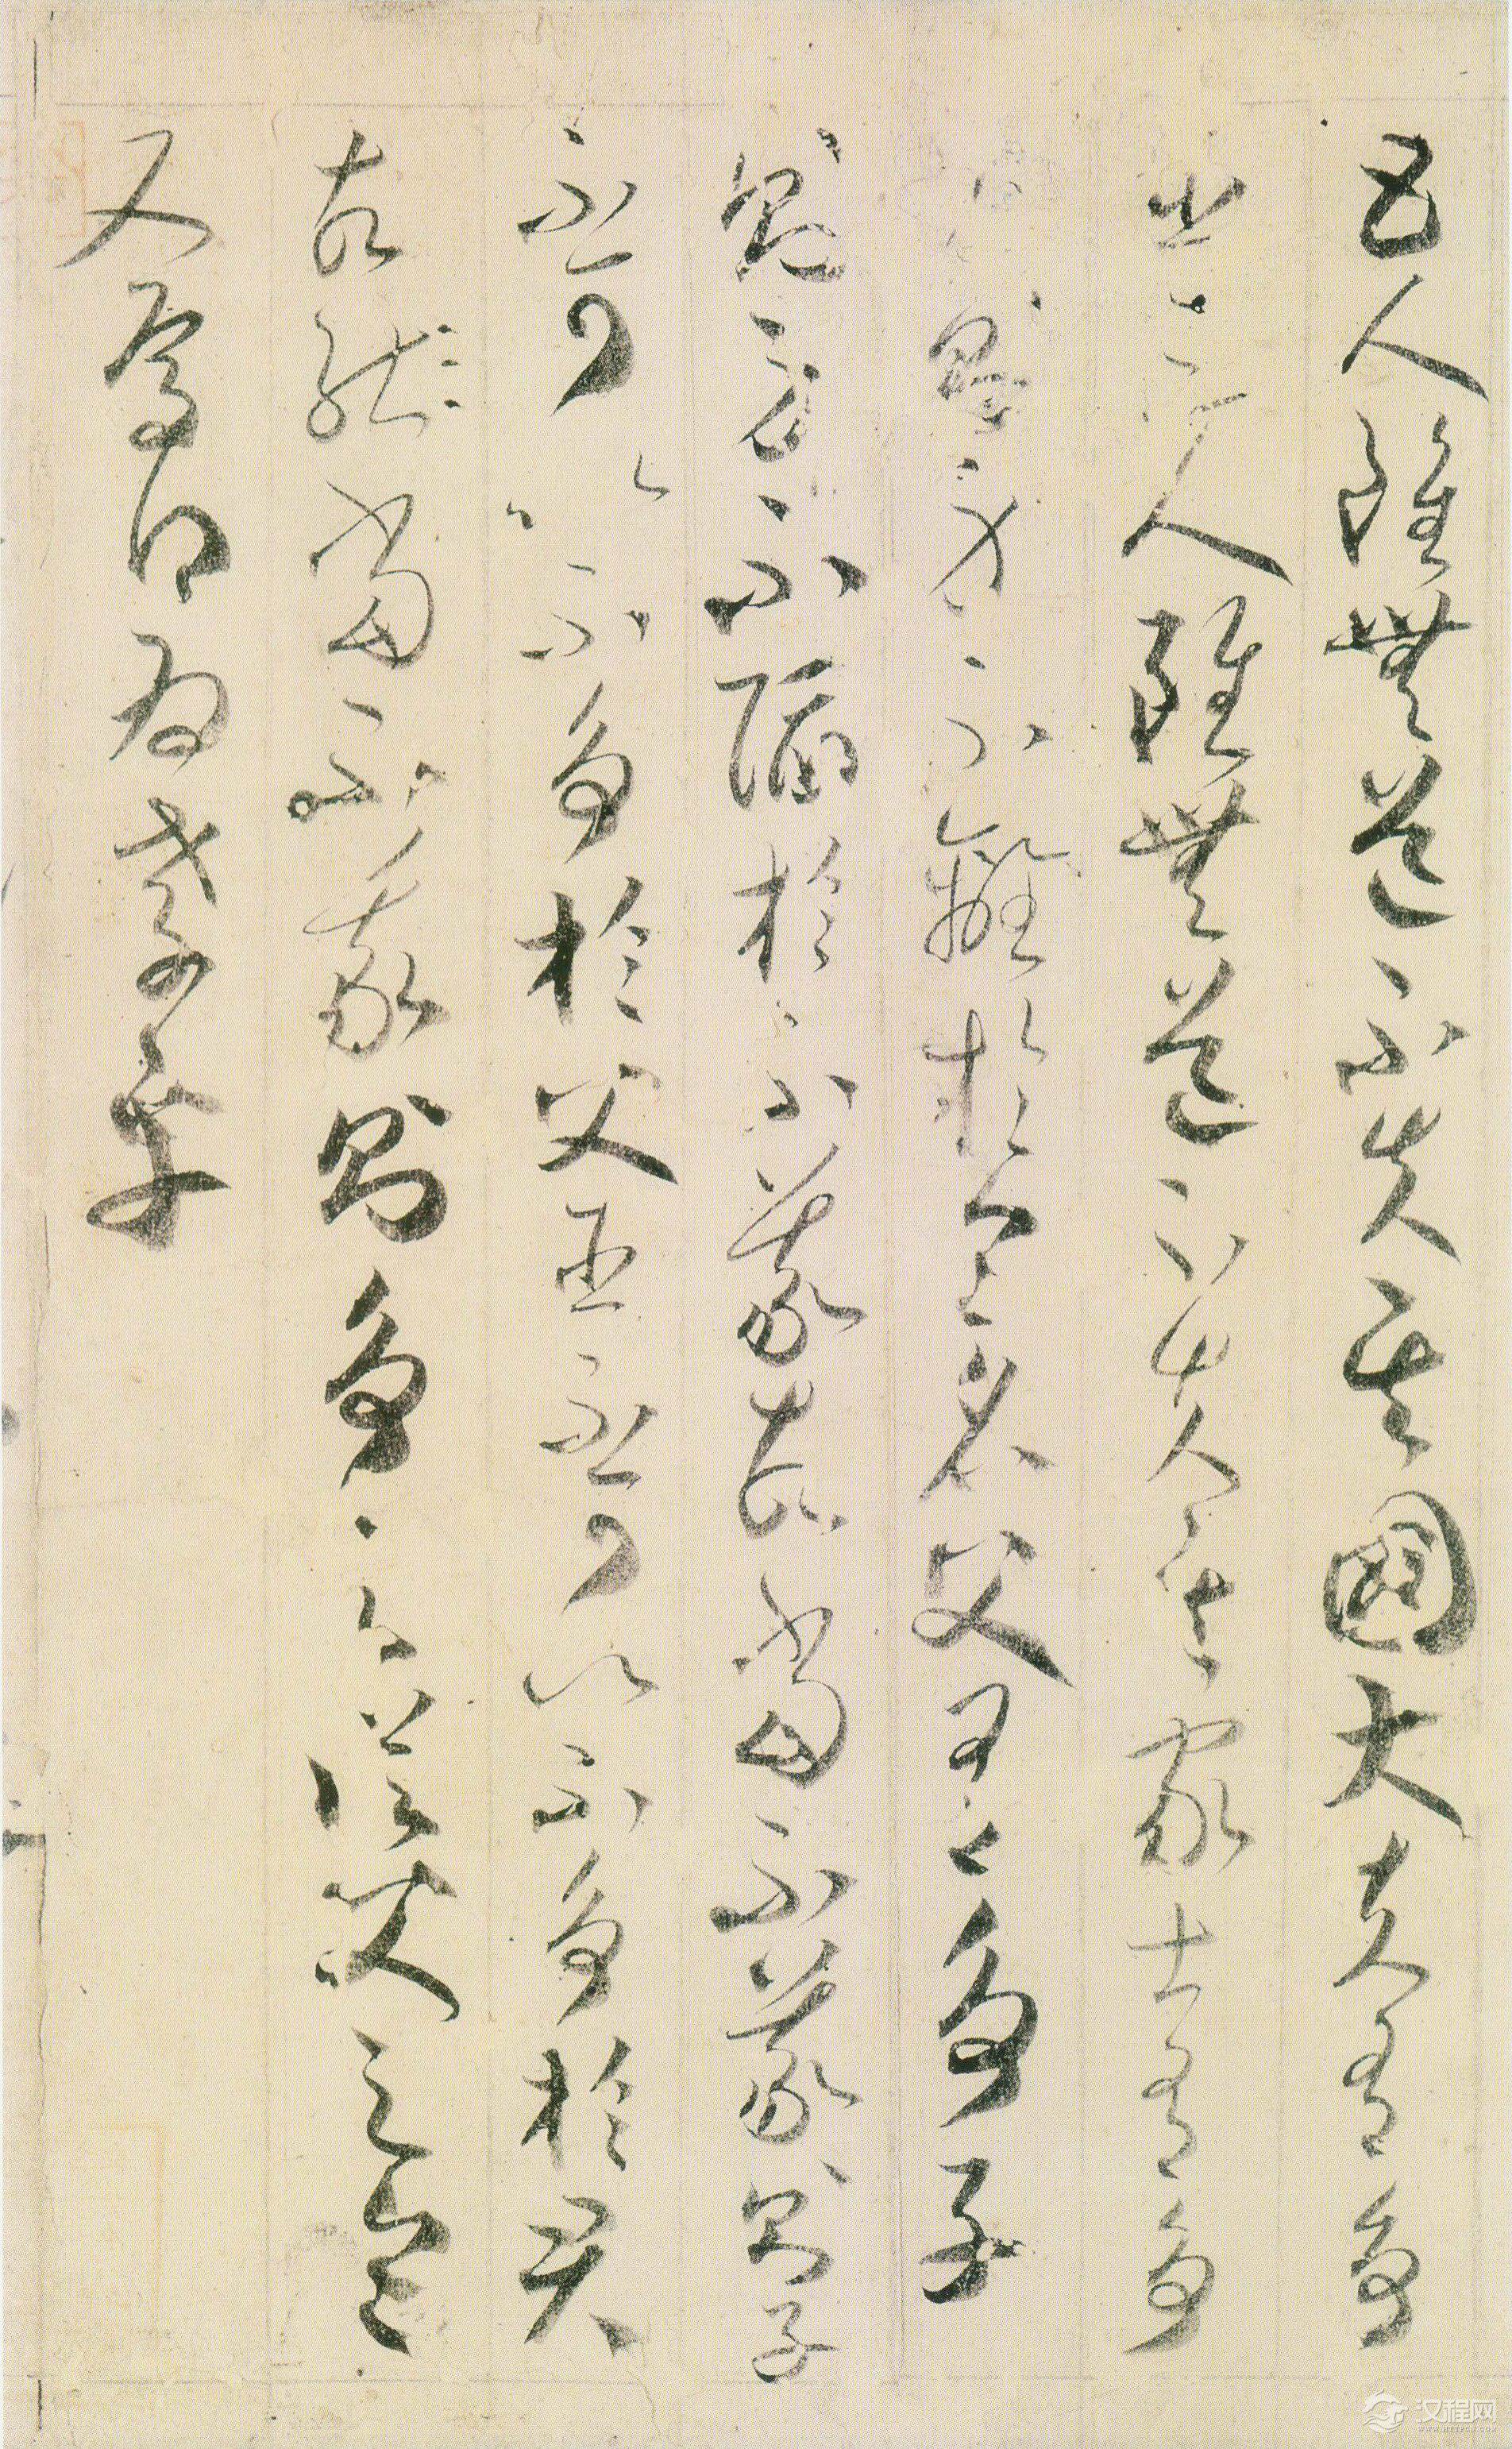 五人雖無道不失其國大夫有爭
臣三人雖無道不失其家士有爭
友則身不離於令名父有爭子
則身不陷於不義故當不義則子
不可以不爭於父臣不可以不爭於君
故當不義則爭之從父之令
又焉得為孝乎
汉程网
WWW.HTTPCN.COM